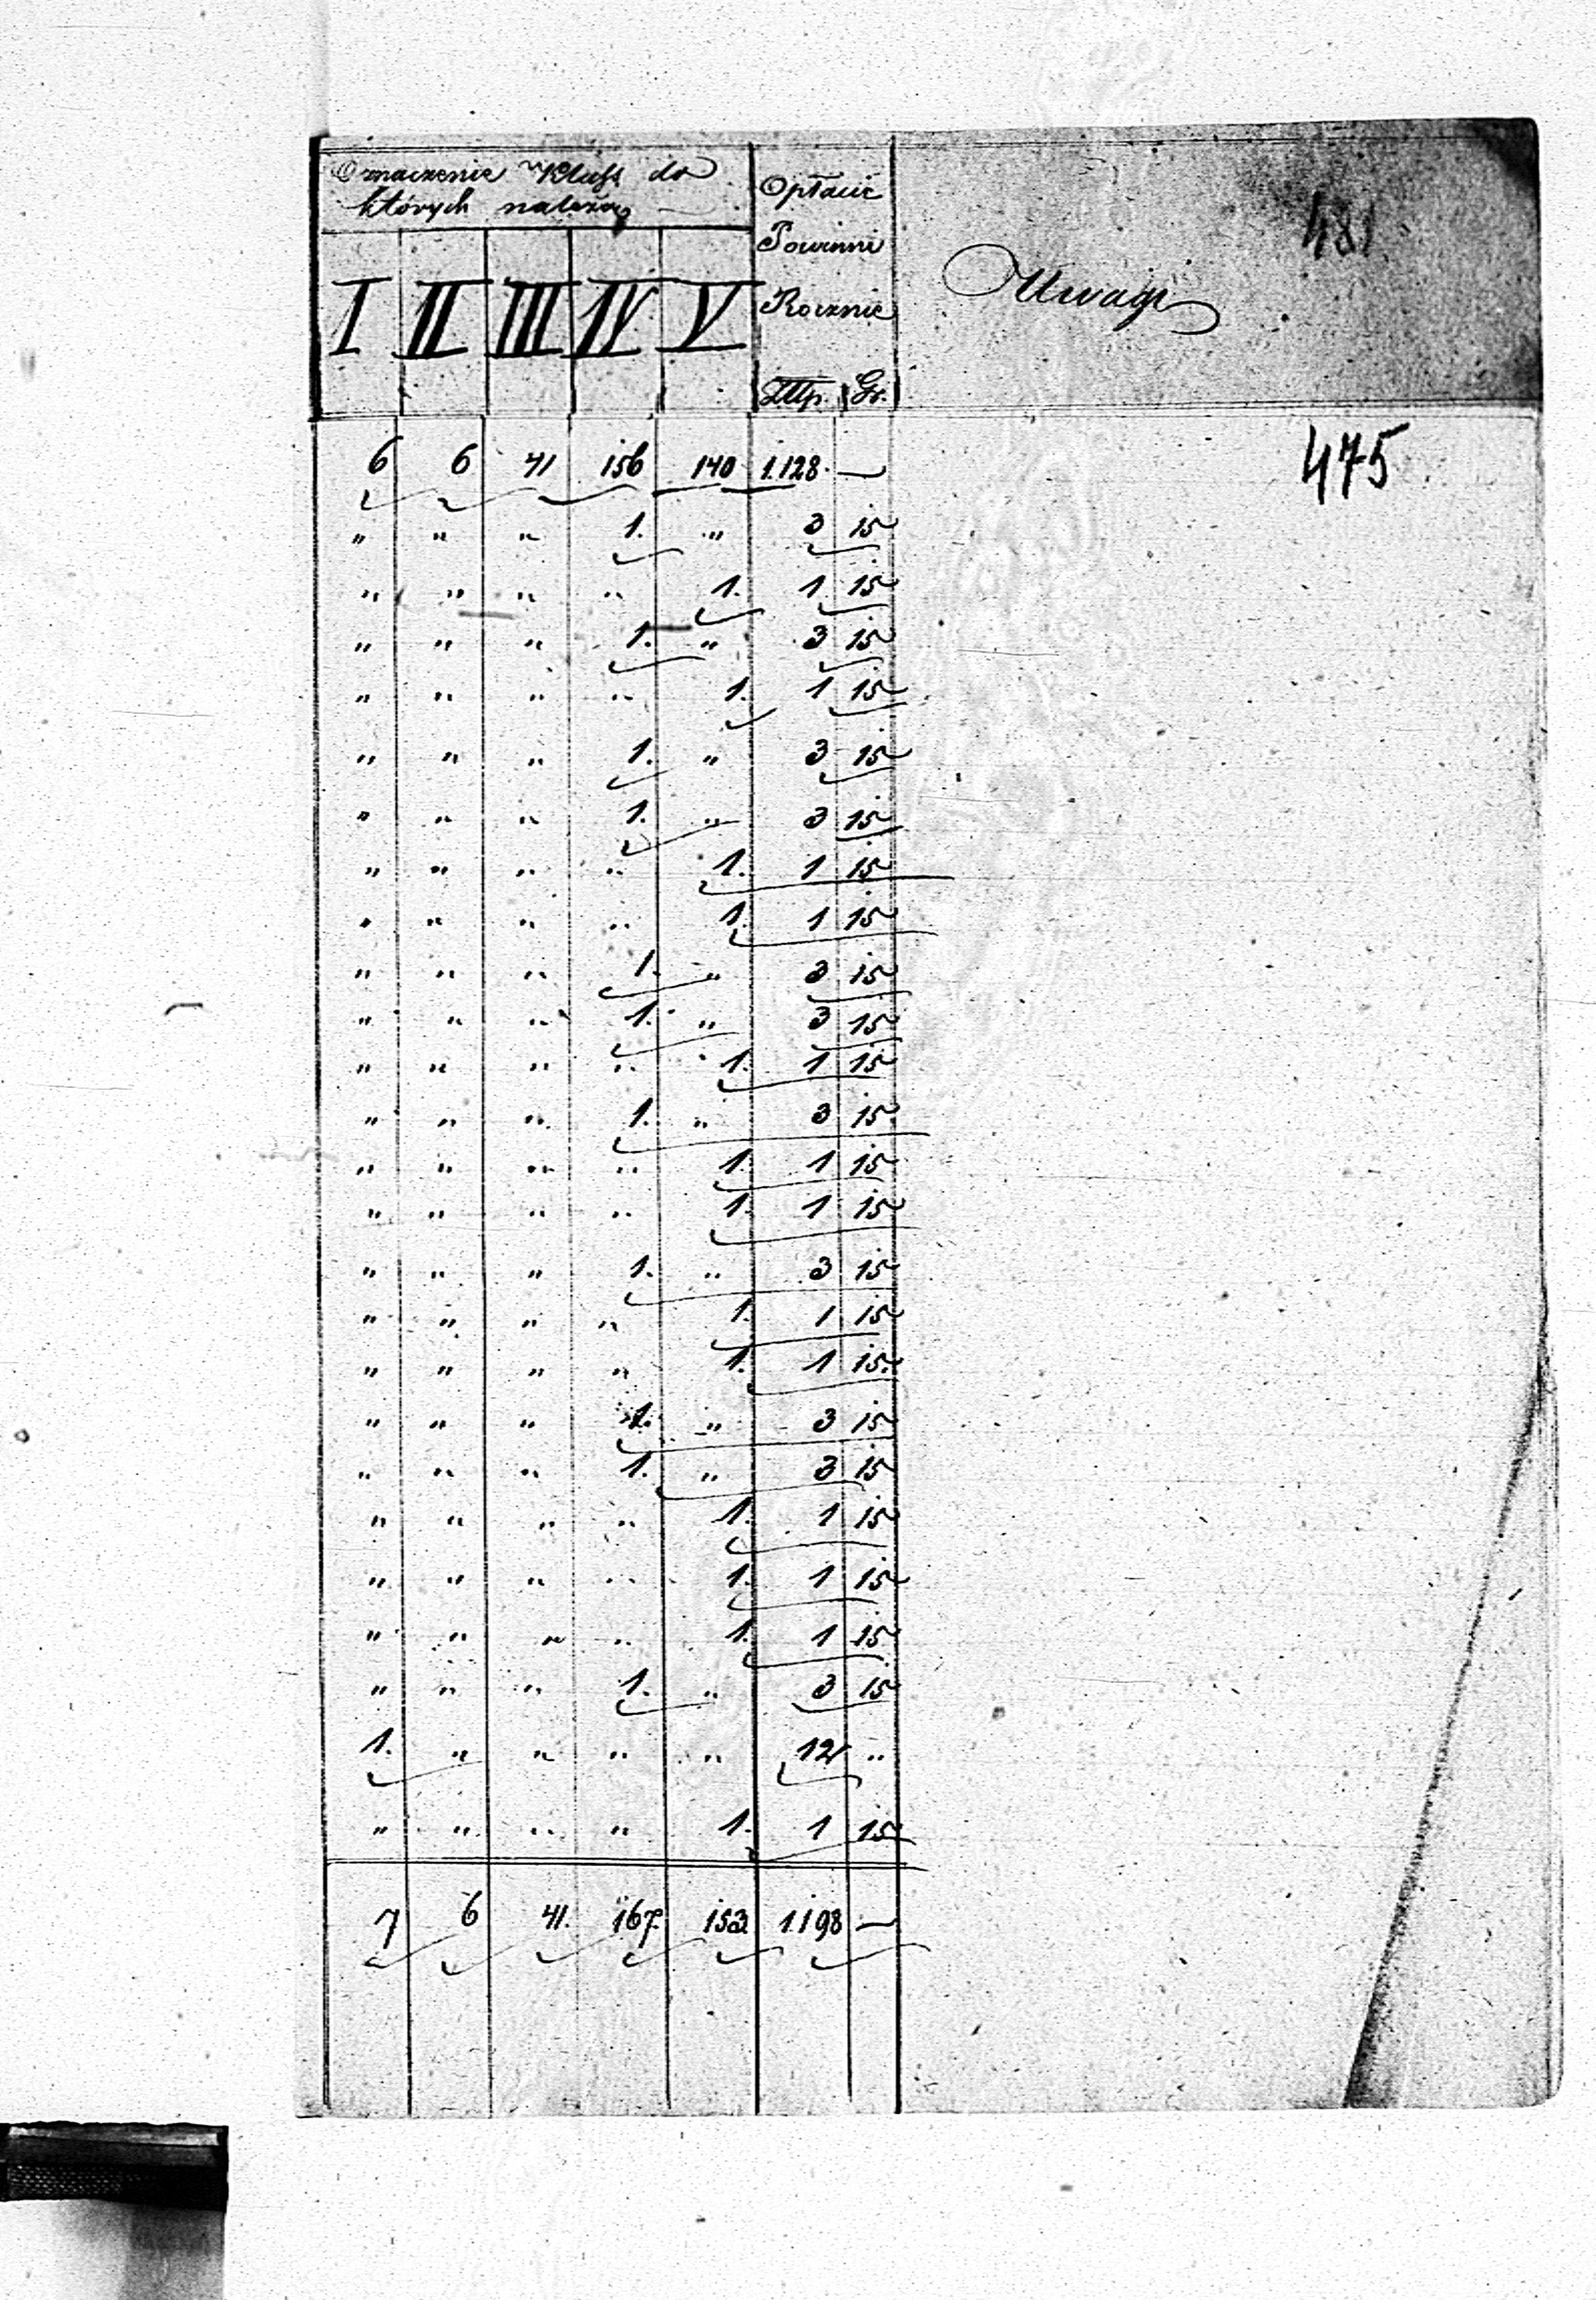 Oznaczenie Klass do
których należą
Opłacić
Powinni
Rocznie
Uwagi
481
I II III IV V
Złłp. Gr.
475
6 6 41 156 140 1.128 —
" " " 1. " 3 15
" " " " 1. 1 15
" " " 1. " 3 15
" " " " 1. 1 15
" " " 1. " 3 15
" " " 1. " 3 15
" " " " 1. 1 15
" " " " 1. 1 15
" " " 1. " 3 15
" " " 1. " 3 15
" " " " 1. 1 15
" " " 1. " 3 15
" " " " 1. 1 15
" " " " 1. 1 15
" " " 1. " 3 15
" " " " 1. 1 15
" " " " 1. 1 15
" " " 1. " 3 15
" " " 1. " 3 15
" " " " 1. 1 15
" " " " 1. 1 15
" " " " 1. 1 15
" " " 1. " 3 15
1. " " " " 12 "
" " " " 1. 1 15
7 6 41. 167. 153 1.198 —